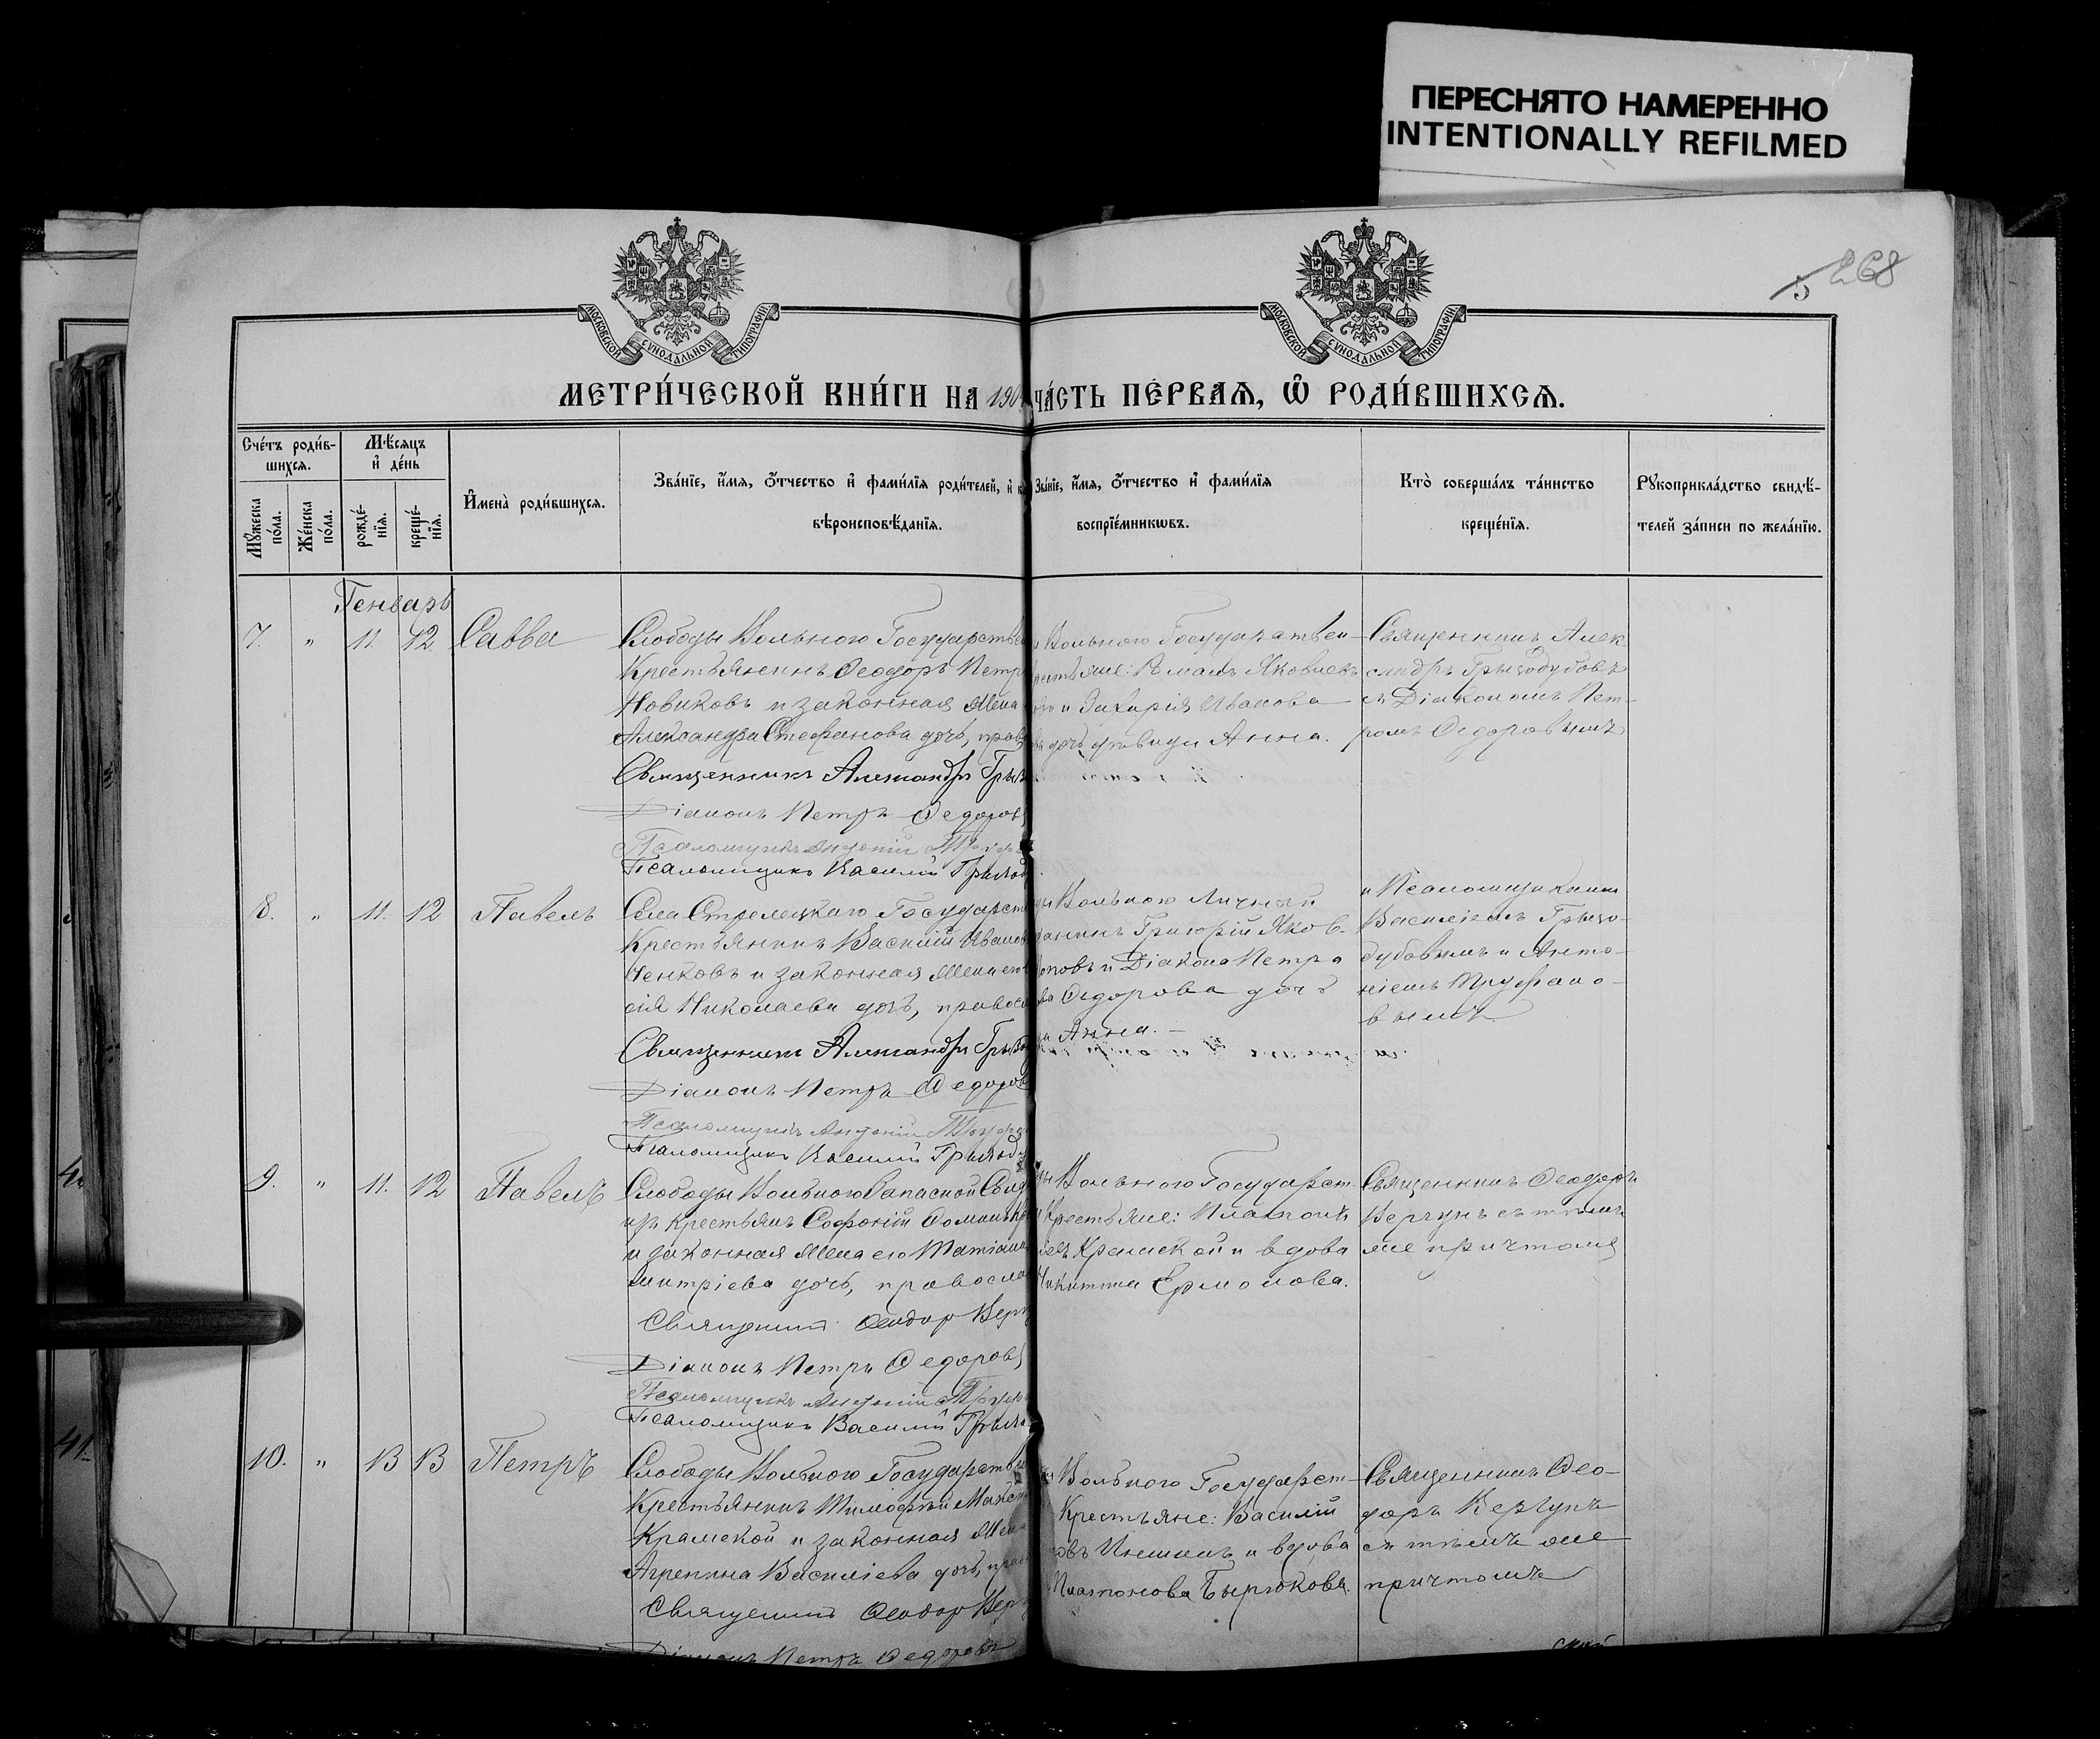 ПЕРЕСНЯТО НАМЕРЕННО
INTENTIONALLY REFILMED
5 268
МОСКОВСКОЙ СѴНОДАЛЬНОЙ ТИПОГРАФІИ
МОСКОВСКОЙ СѴНОДАЛЬНОЙ ТИПОГРАФІИ
МЕТРИ́ЧЕСКОЙ КНИ́ГИ НА 190
ЧА́СТЬ ПЕ́РВАѦ, Ѽ РОДИ́ВШИХСѦ.
Сче́тъ роди́в-
шихсѧ.
Мꙋ́жеска по́ла.
Же́нска по́ла.
Мѣ́сяцъ и҆ де́нь
рожде́-
нїѧ.
креще́-
нїѧ.
И҆мена̀ роди́вшихсѧ.
Зва́нїе, и҆́мѧ, ѻ҆́тчество и҆ фами́лїѧ роди́телей, и҆
вѣроисповѣ́данїѧ.
Зва́нїе, и҆́мѧ, ѻ҆́тчество и҆ фами́лїѧ
воспрїе́мникѡвъ.
Кто̀ соверша́лъ та́инство
креще́нїѧ.
Рꙋкоприкла́дство свидѣ́-
телей за́писи по жела́нїю.
Генварь
7. " 11. 12. Савва
Слободы Вольного Государствен
Крестьянинъ Ѳеодоръ Петр
Новиковъ и законная жена
Александра Стефанова дочь, прав
Священникъ Александръ Гры
Діаконъ Петръ Ѳедоровъ
Псаломщикъ Антоній
Псаломщикъ Василій Грызод
Вольного Государствен-
Романъ Яковлевъ
и Захарія Иванова
дочь дѣвица Анна.
Священникъ Алек-
сандръ Грызодубовъ
съ Діакономъ Пет-
ромъ Ѳедоровымъ
8. " 11. 12 Павелъ
Села Стрелецкаго Государст
Крестьянинъ Василій Иванов
ченковъ и законная жена его
сія Николаева дочь, правосл
Священникъ Александръ Грызо
Діаконъ Петръ Ѳедоров
Псаломщикъ Антоній
Псаломщикъ Василій Грызод
Вольного Личный
Григорій Яков-
и Діакона Петра
Ѳедорова дочь
Анна.
и Псаломщиками
Василіемъ Грызо-
дубовымъ и Анто-
ніемъ Труфано-
вымъ
9. " 11. 12 Павелъ
Слободы Вольного Запасной
изъ крестьянъ Софоній
и законная жена его Татіана
митріева дочь, правосла
Священникъ Ѳеодоръ Верг
Діаконъ Петръ Ѳедоровъ
Псаломщикъ Антоній
Псаломщикъ Василій Грызо
Вольного Государст-
Крестьяне: Платонъ
Крамской и вдова
Никитина Ермолова.
Священникъ Ѳеодоръ
Вергунъ съ тѣмъ
же причтомъ
10. " 13 13 Петръ
Слободы Вольного Государств
Крестьянинъ Тимоѳей Макси
Крамской и законная жена
Агрепина Василіева дочь, прав
Священникъ Ѳеодоръ Верг
Діаконъ Петръ Ѳедоровъ
Вольного Государст-
Крестьяне: Василій
и вдова
Платонова Бырюкова.
Священникъ Ѳео-
доръ Вергунъ
съ тѣмъ же
причтомъ
41.